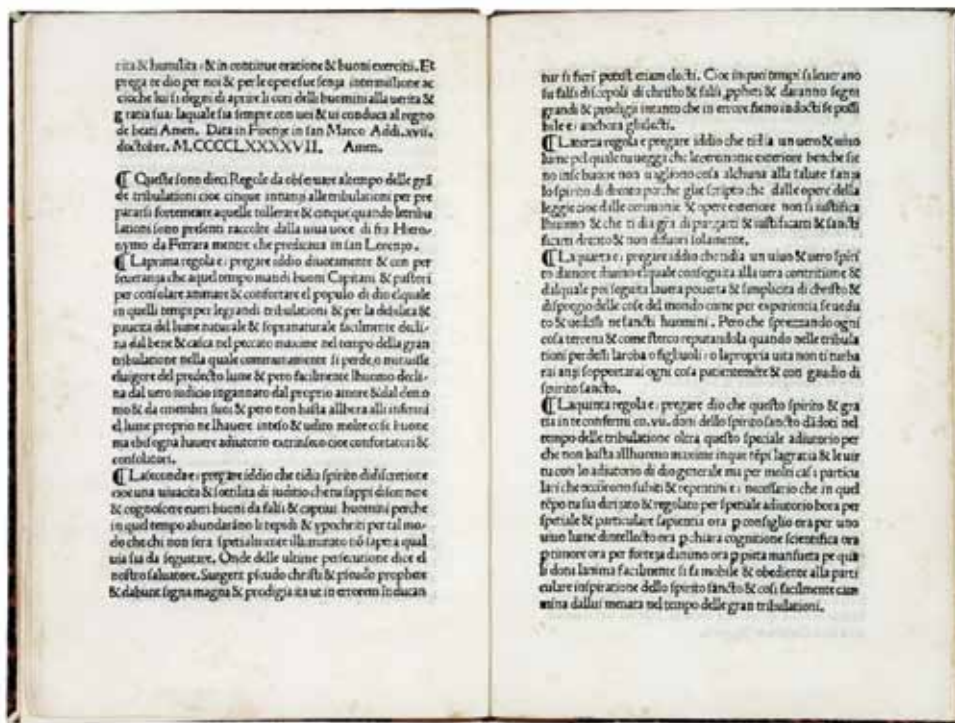 rita & humilita: & in continue oratione & buoni exercitii. Et
prega te dio per noi & per le opere sue senza intermissione ac
cioche lui si degni di aprire li cori delli huomini alla uerita &
gratia sua: laquale sia sempre con uoi & ui conduca al regno
de beati Amen. Data in Firenze in san Marco Addi. xvii.
doctober. M.CCCCLXXXXVII. Amen.
¶ Queste sono dieci Regole da obseruare al tempo delle grã
de tribulationi cioe cinque innanzi alle tribulationi per pre
pararsi fortemente a quelle tollerare & cinque quando le tribu
lationi sono presenti raccolte dalla uiua uoce di fra Hiero-
nymo da Ferrara mentre che predicaua in san Lorenzo.
¶ La prima regola e: pregare iddio diuotamente & con per
seueranza che a quel tempo mandi buoni Capitani & pastori
per consolare animare & confortare el populo di dio elquale
in quelli tempi per le grandi tribulationi & per la debilita &
paucita del lume naturale & sopranaturale facilmente decli-
na dal bene & casca nel peccato maxime nel tempo della gran
tribulatione nella quale communamente si perde, o minuisse
el uigore del predecto lume & pero facilmente lhuomo decli-
na dal uero iudicio ingannato dal proprio amore & dal demo
nio & da membri suoi & pero non basta allhora alli infermi
el lume proprio ne lhauere inteso & udito molte cose buone
ma bisogna hauere adiutorio extrinseco cioe confortatori &
consolatori.
¶ La seconda e: pregare iddio che ti dia spirito di discretione
cioe una uiuacita & sottilita di iuditio che tu sappi discernere
& cognoscere tutti buoni da falsi & captiui huomini perche
in quel tempo abundarãno le tepidi & ypochriti per tal mo-
do che chi non sera spetialmente illuminato nõ sapera qual
uia sia da seguitare. Onde delle ultime persecutione dice el
nostro saluatore. Surgent pseudo christi & pseudo prophete
& dabunt signa magna & prodigia ita ut in errorem inducan
tur si fieri potest etiam electi. Cioe in quei tempi si leuerano
su falsi discepoli di christo & falsi ꝓpheti & daranno segni
grandi & prodigii intanto che in errore fieno indocti se possi
bile e: anchora gli electi.
¶ La terza regola e pregare iddio che ti dia un uero & uiuo
lume pel quale tu uegga che le cerimonie exteriore benche sie
no in se buone non uagliono cosa alchuna alla salute sanza
lo spirito di drento perche glie scripto che dalle opere della
leggie cioe dalle cerimonie & opere exteriore non si iustifica
lhuomo & che ti dia gra di purgarti & iustificarti & sancti
ficarti drento & non difuori solamente.
¶ La quarta e: pregare iddio che ti dia un uiuo & uero spiri
to damore diuino elquale conseguita alla uera contritione &
dalquale poi seguita la uera pouerta & simplicita di christo &
dispregio delle cose del mondo come per experientia se uedu
to & uedesi ne sancti huomini. Pero che sprezzando ogni
cosa terrena & come sterco reputandola quando nelle tribula
tioni perdesti la roba o figluoli: o la propria uita non ti turba
rai anzi sopporterai ogni cosa patientemẽte & con gaudio di
spirito sancto.
¶ La quinta regola e: pregare dio che questo spirito & gra
tia in te confermi co. vii. doni dello spirito sancto dãdoti nel
tempo delle tribulatione oltra questo speciale adiutorio per
che non basta allhuomo maxime in que tẽpi la gratia & le uir
tu con lo adiutorio di dio generale ma per molti casi particu
lari che occorreno subiti & repentini e: necessario che in quel
tẽpo tu sia dirizato & regolato per spetiale adiutorio hora per
spetiale & particulare sapientia ora ꝑ consiglio ora per uno
uiuo lume dintellecto ora ꝑ chiara cognitione scientifica ora
ꝑ timore ora per forteza danimo ora ꝑ pieta mansueta pe qua
li doni lanima facilmente si fa mobile & obediente alla parti
culare inspiratione dello spirito sancto & cosi facilmente cam
mina dallui menata nel tempo delle gran tribulationi.